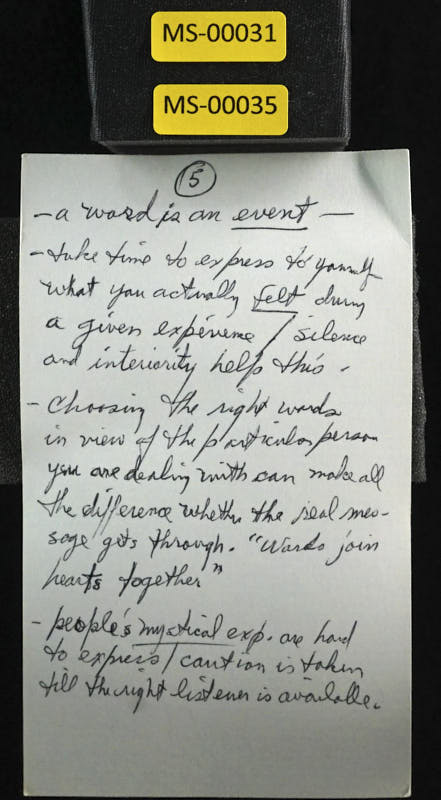 MS-00031
MS-00035
5
- a word is an event -
- take time to express to yourself
what you actually felt during
a given experience / silence
and interiority help this.
- choosing the right words
in view of the particular person
you are dealing with can make all
the difference whether the real mes-
sage gets through. "Words join
hearts together"
- people's mystical exp. are hard
to express / caution is taken
till the right listener is available.